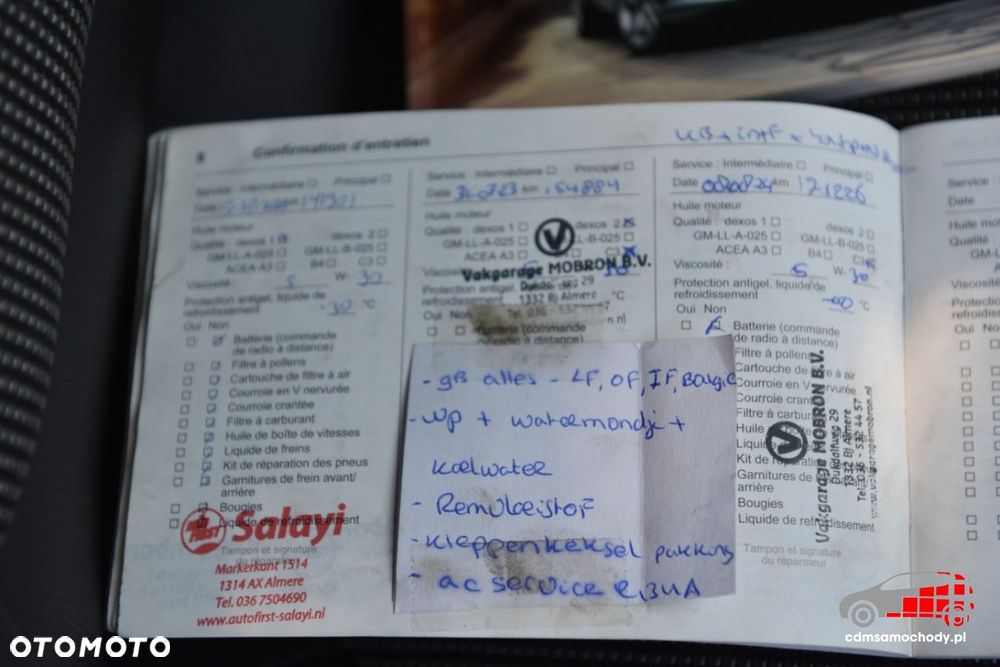 8 Confirmation d'entretien
Service : Intermédiaire Principal
Date km 141321
Huile moteur
Qualité : dexos 1 dexos 2
GM-LL-A-025 GM-LL-B-025
ACEA A3 B4 C3
Viscosité : 5 W- 30
Protection antigel, liquide de
refroidissement -30 °C
Oui Non
Batterie (commande
de radio à distance)
Filtre à pollens
Cartouche de filtre à air
Courroie en V nervurée
Courroie crantée
Filtre à carburant
Huile de boîte de vitesses
Liquide de freins
Kit de réparation des pneus
Garnitures de frein avant/
arrière
Bougies
Liquide de refroidissement
Salayi
Tampon et signature
du réparateur
Markerkant 1514
1314 AX Almere
Tel. 036 7504690
www.autofirst-salayi.nl
Service : Intermédiaire Principal
Date km 154884
Huile moteur
Qualité : dexos 1 dexos 2
GM-LL-A-025 LL-B-025
ACEA A3 C3
Vakgarage MOBRON B.V.
Viscosité 30
Protection antigel, liquide de
refroidissement °C
1332 BJ Almere
Oui Non
Batterie (commande
de radio à distance)
- gB alles - LF, OF, IF, Bougie
- WP + +
koelwater
- Remvloeistof
- kleppendeksel pakking
- ac service
Service : Intermédiaire Principal
Date 080824 km 171226
Huile moteur
Qualité : dexos 1 dexos 2
GM-LL-A-025 GM-LL-B-025
ACEA A3 B4 C3
Viscosité : 5 W- 30
Protection antigel, liquide de
refroidissement °C
Oui Non
Batterie (commande
de radio à distance)
Filtre à pollens
Cartouche de filtre à
Courroie en V nervurée
Courroie crantée
Filtre à carburant
Huile de boîte
Liquide
Kit de réparation
Garnitures de
arrière
Bougies
Liquide de refroidissement
Tampon et signature
du réparateur
Vakgarage MOBRON B.V.
Dukdalfweg 29
1332 BJ Almere
Tel. 036 - 532 44 57
www.vakgaragemobron.nl
Service :
Date
Huile moteur
Qualité :
GM-LL-
ACEA
Viscosité
Protection
refroidiss
Oui Non
OTOMOTO
cdmsamochody.pl